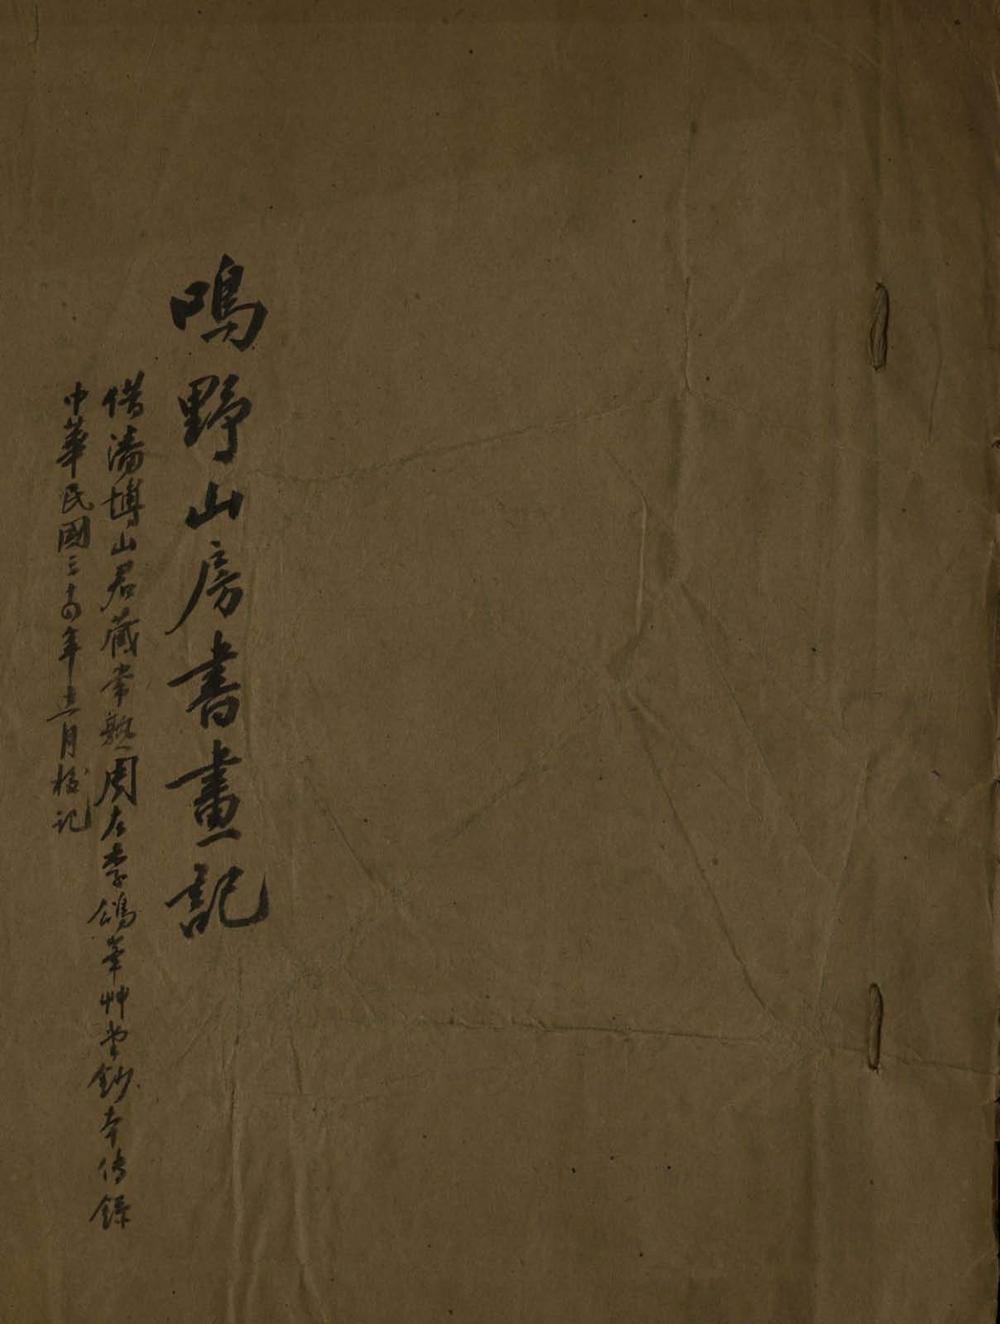 鳴野山房書畫記
借潘博山君藏常熟周左季鴿峯艸堂鈔本傳錄
中華民國三十四年十二月校記